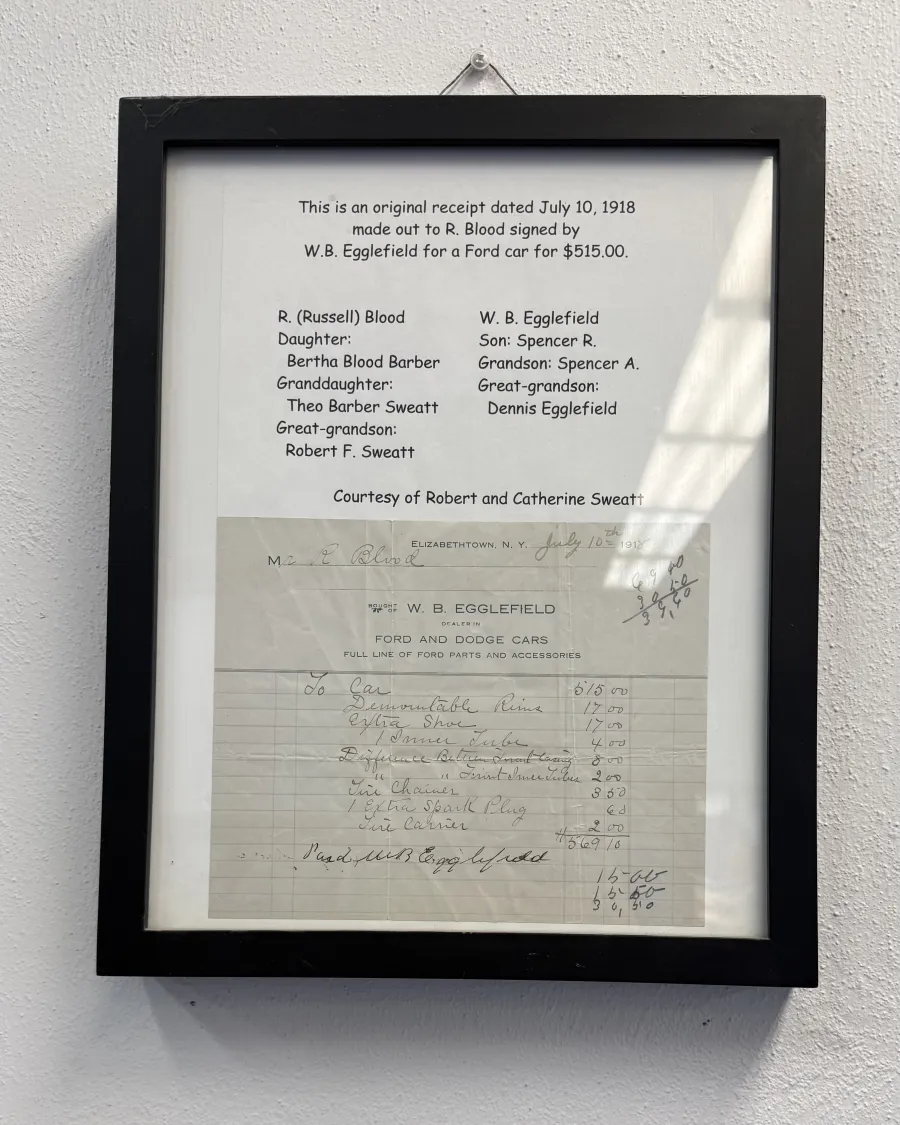 This is an original receipt dated July 10, 1918
made out to R. Blood signed by
W.B. Egglefield for a Ford car for $515.00.
R. (Russell) Blood
Daughter:
Bertha Blood Barber
Granddaughter:
Theo Barber Sweatt
Great-grandson:
Robert F. Sweatt
W. B. Egglefield
Son: Spencer R.
Grandson: Spencer A.
Great-grandson:
Dennis Egglefield
Courtesy of Robert and Catherine Sweatt
ELIZABETHTOWN, N. Y. July 10th 1918
Mr R Blood
BOUGHT OF W. B. EGGLEFIELD
DEALER IN
FORD AND DODGE CARS
FULL LINE OF FORD PARTS AND ACCESSORIES
To Car 515 00
Demountable Rims 17 00
Extra Shoe 17 00
1 Inner Tube 4 00
Difference Between Front 8 00
" " Front Inner Tubes 2 00
Tire Chains 3 50
1 Extra Spark Plug 60
Tire Carrier 2 00
569 10
Paid W B Egglefield
15 00
15 50
30,50